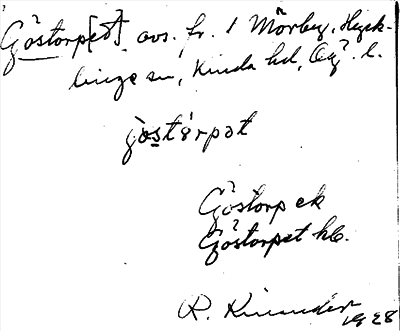 Göstorp[et], avs. fr. 1 Mörby, Hyck-
linge sn, Kinda hd, Ög. l.
jostorpat
Göstorp ek
Göstorpet hb.
R. Kinander
1928